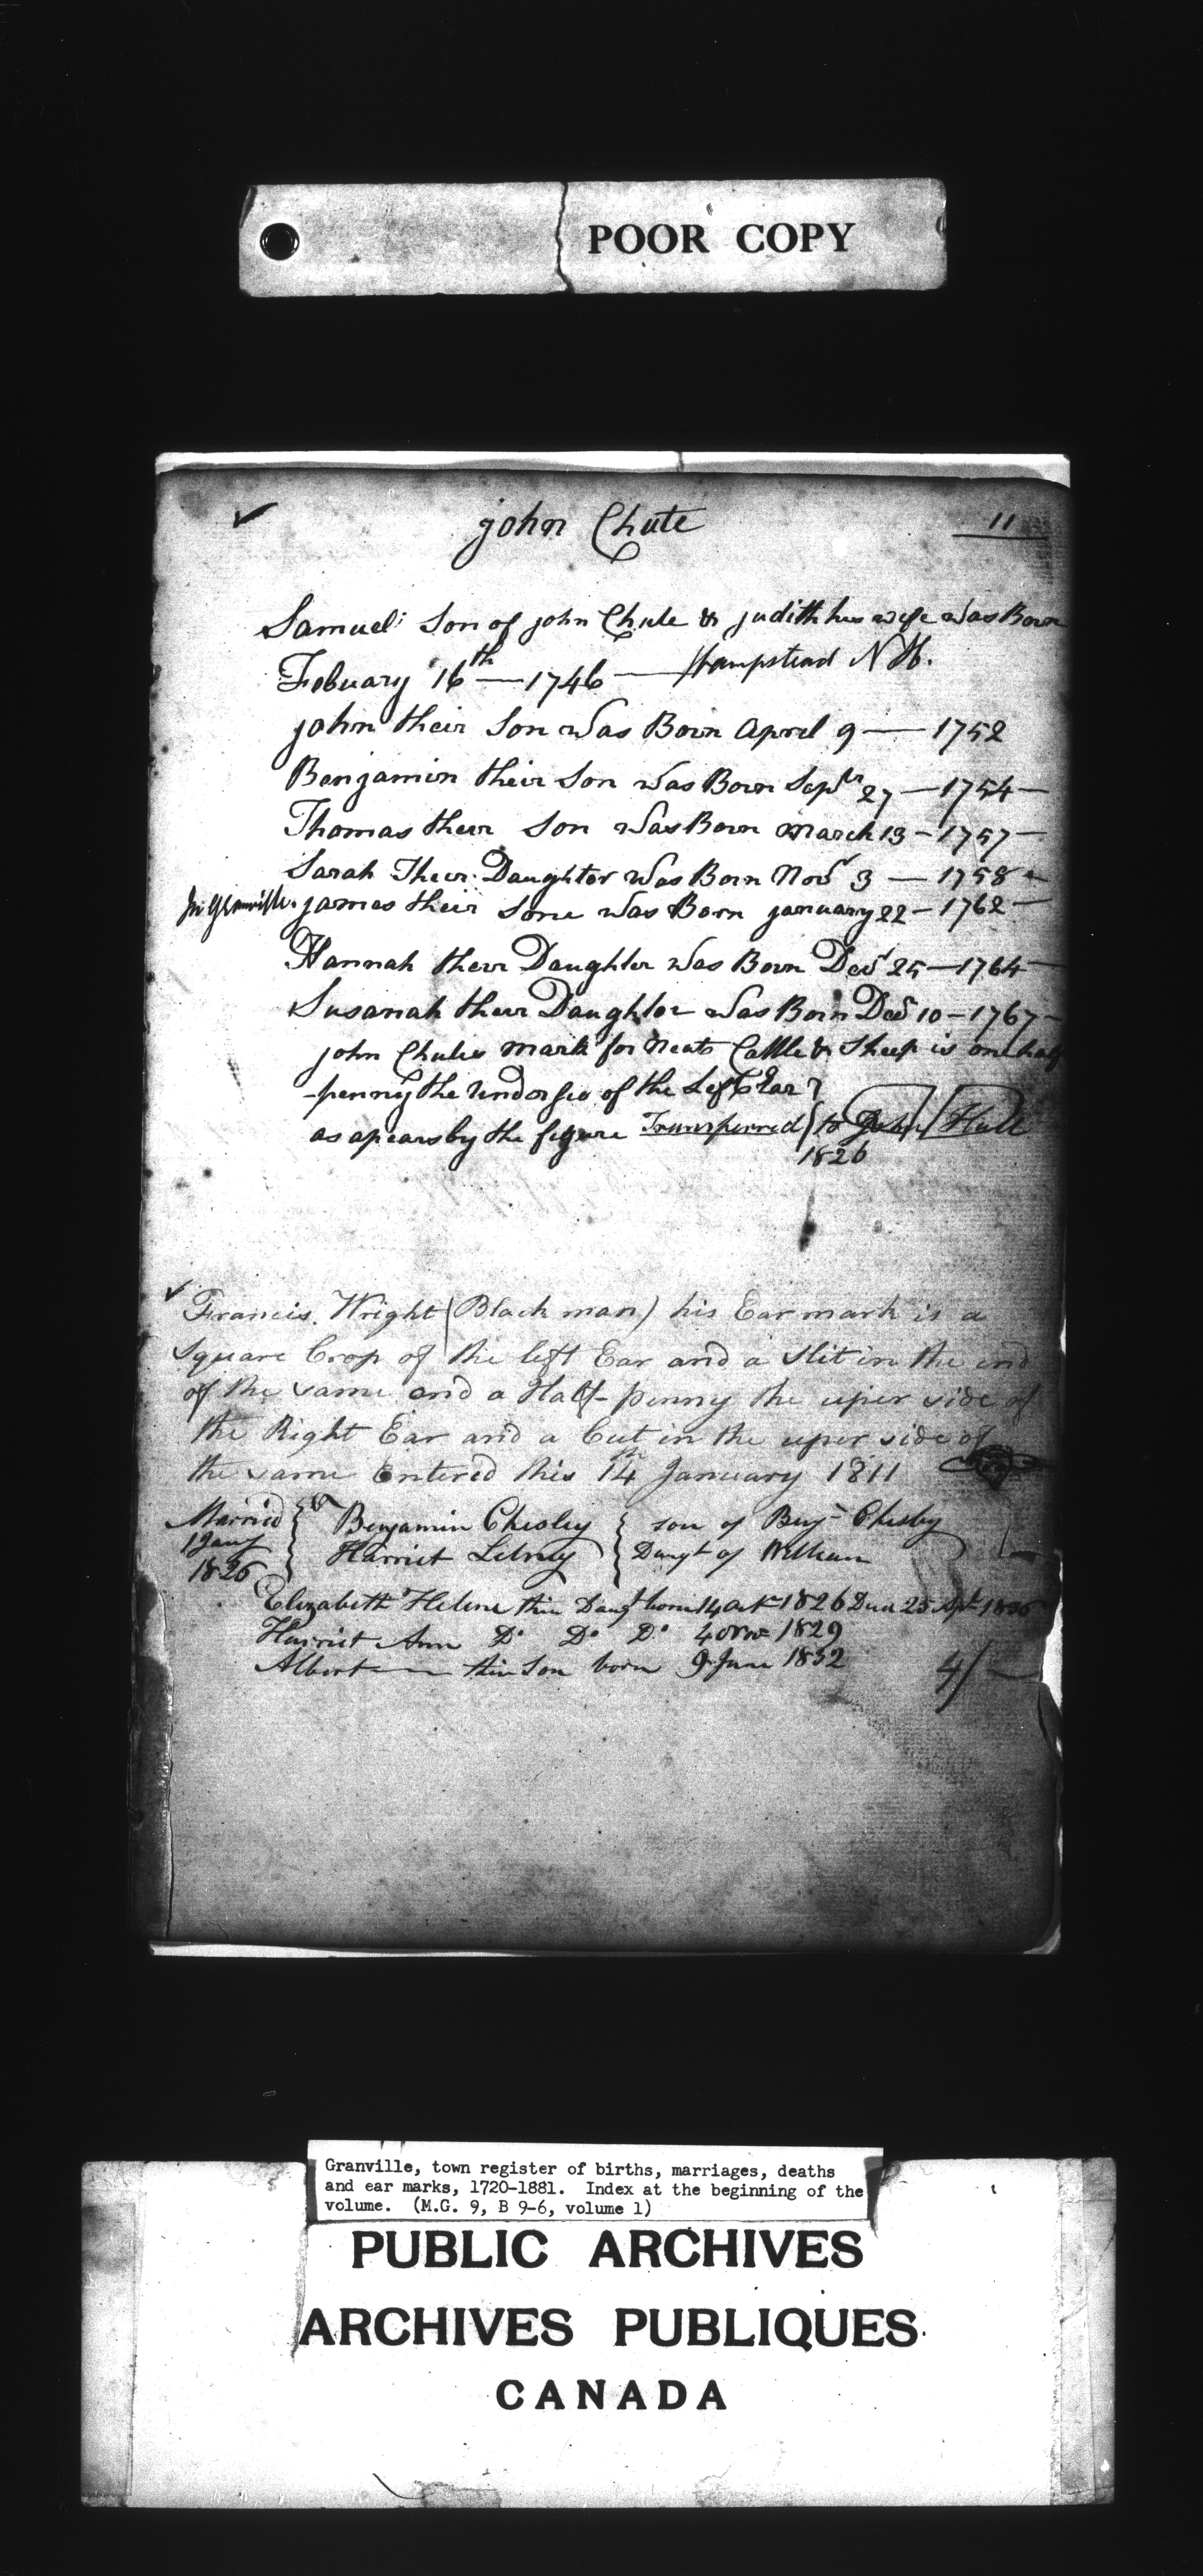 POOR COPY
john Chute
11
Samuel Son of john Chute & judith his wife Was Born
Febuary 16th — 1746 — Hampstead N H.
john their Son Was Born April 9 — 1752
Benjamin their Son Was Born Sepbr 27 — 1754 —
Thomas their Son Was Born march 13 — 1757 —
Sarah Their Daughter Was Born Novr 3 — 1758
In Granville. james their Sone Was Born january 22 — 1762 —
Hannah their Daughter Was Born Decr 25 — 1764 —
Susanah their Daughter Was Born Decr 10 — 1767 —
john Chutes mark for Neat Cattle & Sheep is one half
-penny the of the Left Ear
as apears by the figure Transferred to John Hall
1826
Francis. Wright (Black man) his Ear mark is a
Square Crop of the left Ear and a Slit in the end
of the same and a Half-penny the uper side of
the Right Ear and a Cut in the uper side of
the same Entered this 14th January 1811
Married Benjamin Chesley son of Benjn Chesley
1 Jany Harriet Daugt of William
1826
Elizabeth Helene their Daugt born 14 Octr 1826 Died 25 Sept
Harriet Ann Do Do Do 4 Novr 1829
Albert their Son born 9 June 1832
4/—
Granville, town register of births, marriages, deaths
and ear marks, 1720-1881. Index at the beginning of the
volume. (M.G. 9, B 9-6, volume 1)
PUBLIC ARCHIVES
ARCHIVES PUBLIQUES
CANADA